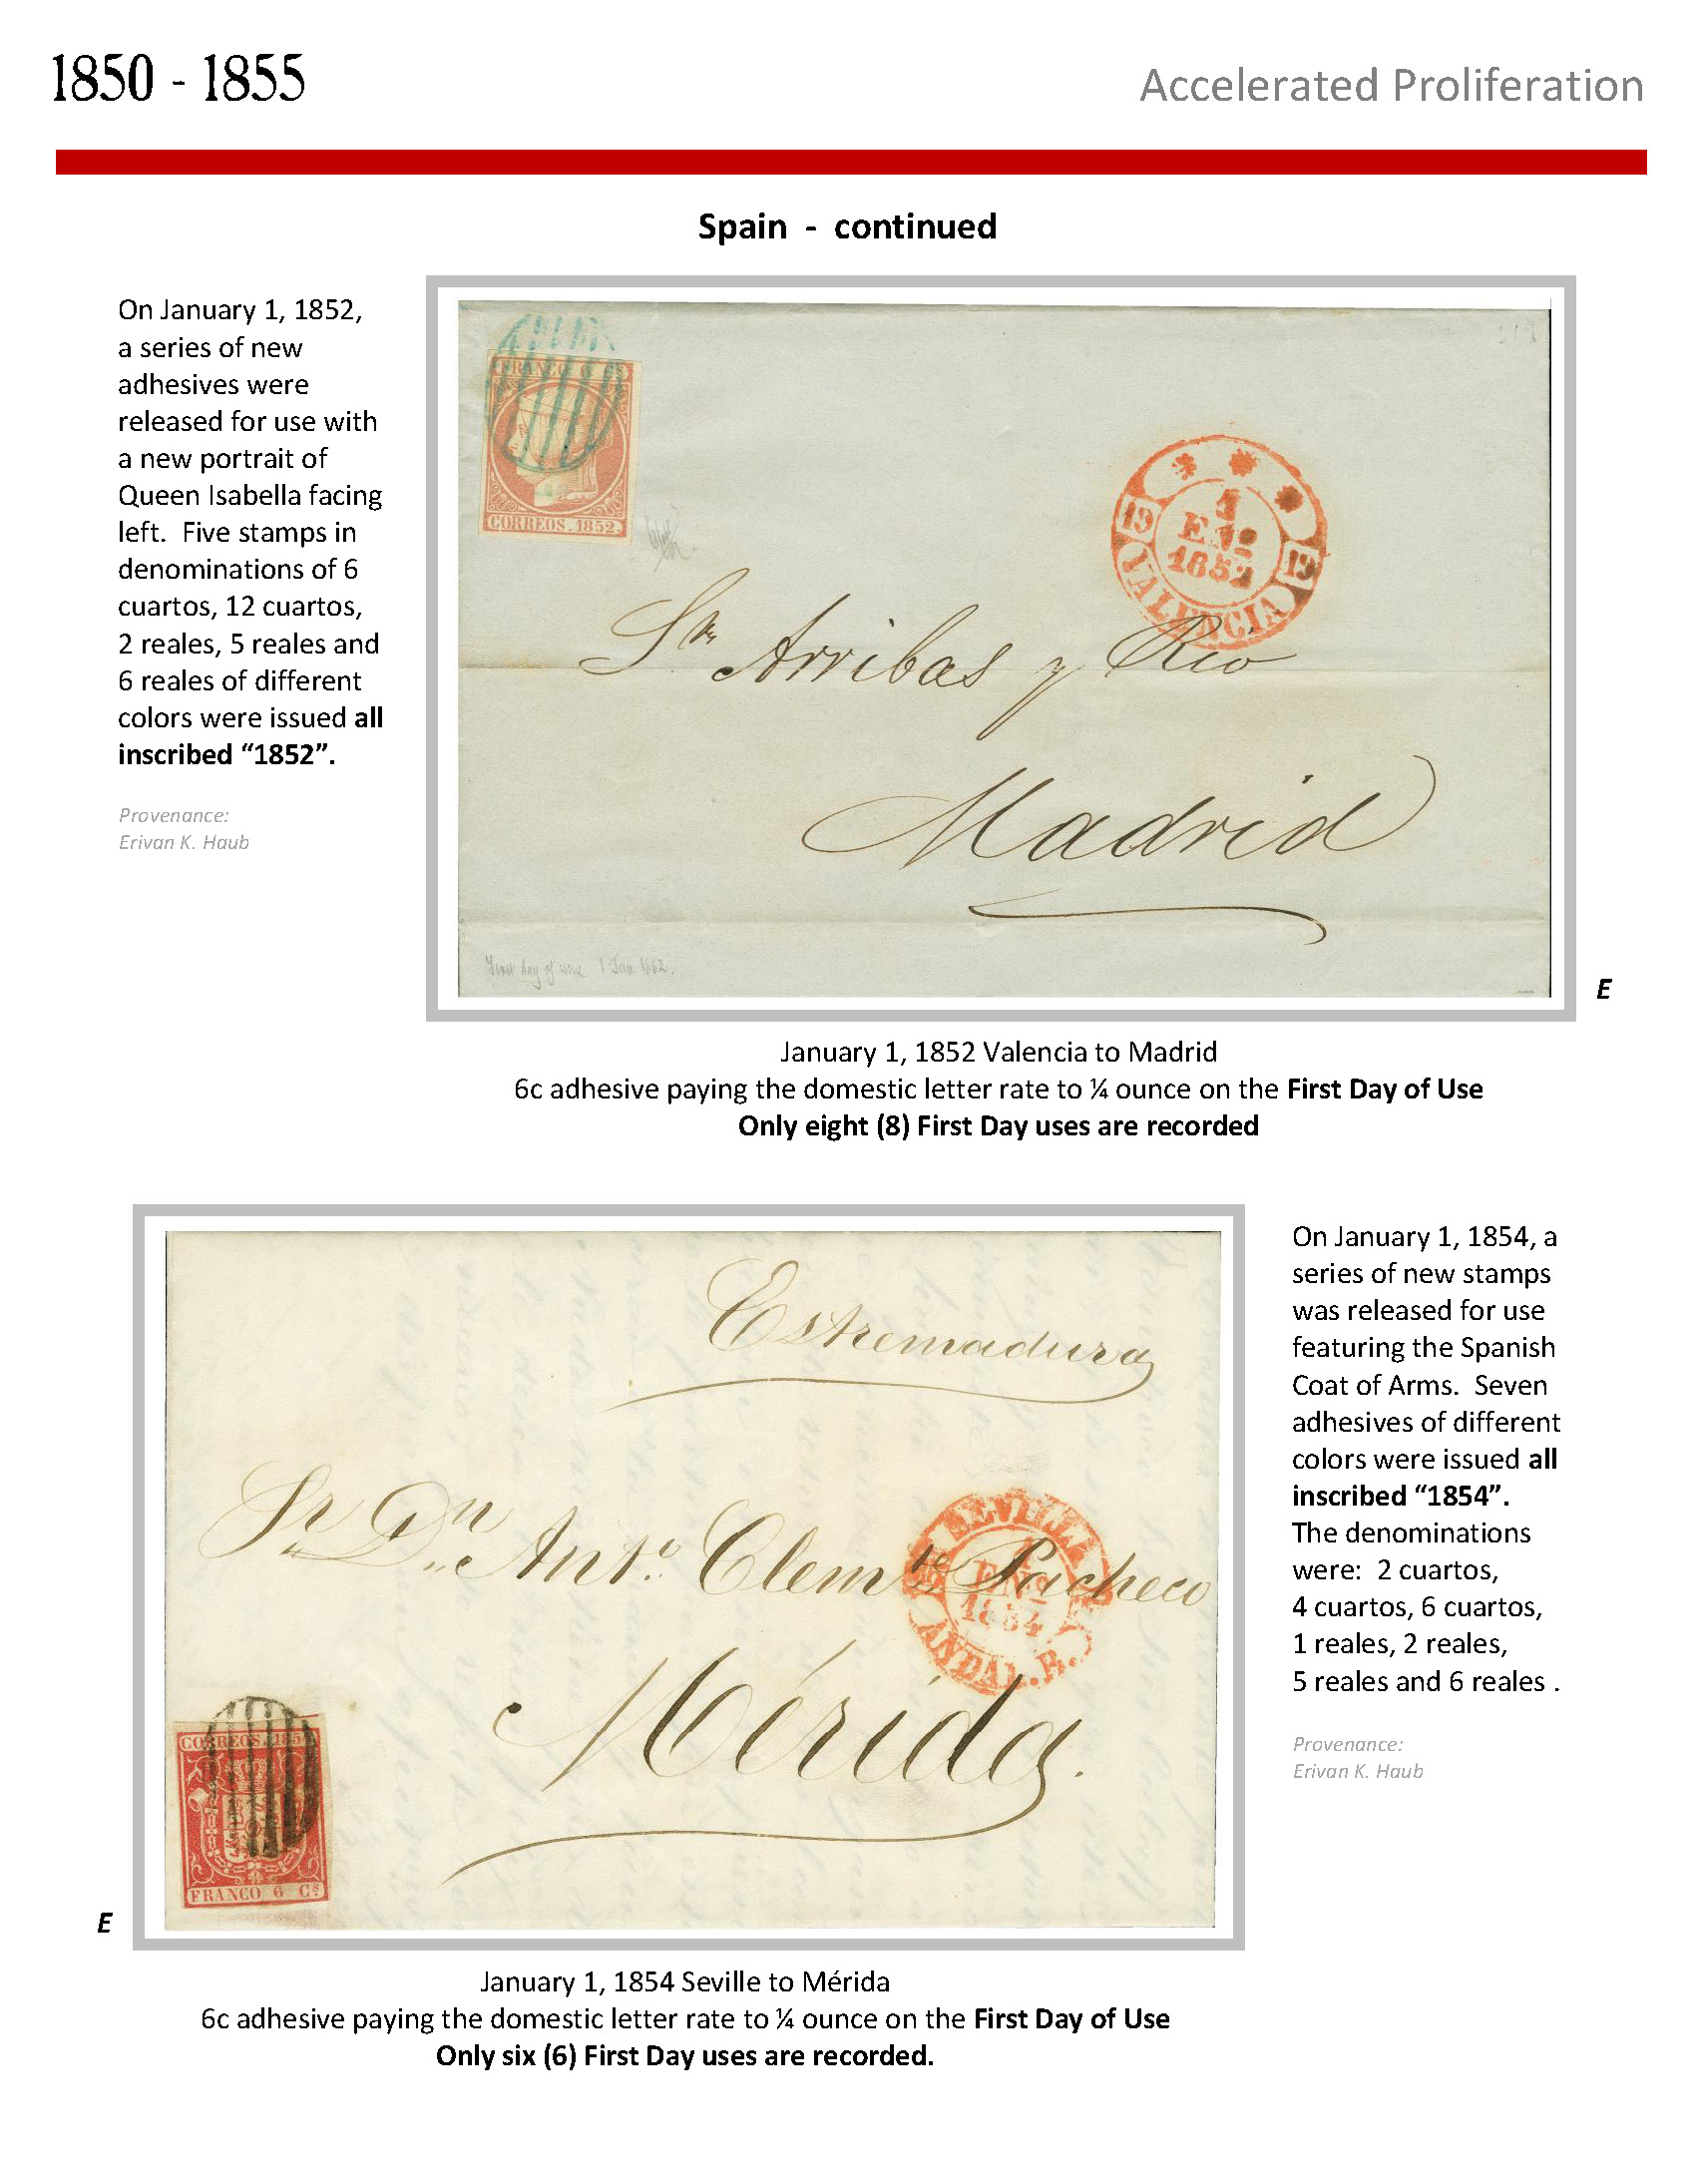 1850 - 1855
Accelerated Proliferation
Spain - continued
On January 1, 1852,
a series of new
adhesives were
released for use with
a new portrait of
Queen Isabella facing
left. Five stamps in
denominations of 6
cuartos, 12 cuartos,
2 reales, 5 reales and
6 reales of different
colors were issued all
inscribed “1852”.
Provenance:
Erivan K. Haub
FRANCO 6 Cs
CORREOS. 1852.
19
1
ENº
1852
19
VALENCIA
Arribas y Rio
Madrid
First day of use 1 Jan 1852.
E
January 1, 1852 Valencia to Madrid
6c adhesive paying the domestic letter rate to ¼ ounce on the First Day of Use
Only eight (8) First Day uses are recorded
Estremadura
Sr Dn Anto. Clemte Pacheco
SEVILLA
1
ENº
1854
ANDAL. B.
Mérida.
CORREOS. 1854
FRANCO 6 Cs
E
On January 1, 1854, a
series of new stamps
was released for use
featuring the Spanish
Coat of Arms. Seven
adhesives of different
colors were issued all
inscribed “1854”.
The denominations
were: 2 cuartos,
4 cuartos, 6 cuartos,
1 reales, 2 reales,
5 reales and 6 reales .
Provenance:
Erivan K. Haub
January 1, 1854 Seville to Mérida
6c adhesive paying the domestic letter rate to ¼ ounce on the First Day of Use
Only six (6) First Day uses are recorded.